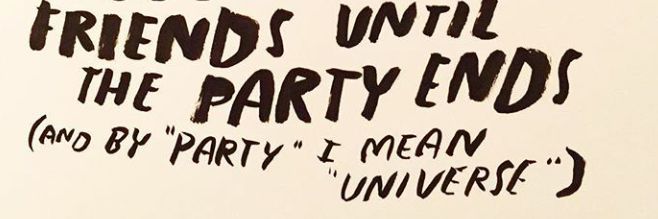 FRIENDS UNTIL
THE PARTY ENDS
(AND BY "PARTY" I MEAN
"UNIVERSE")